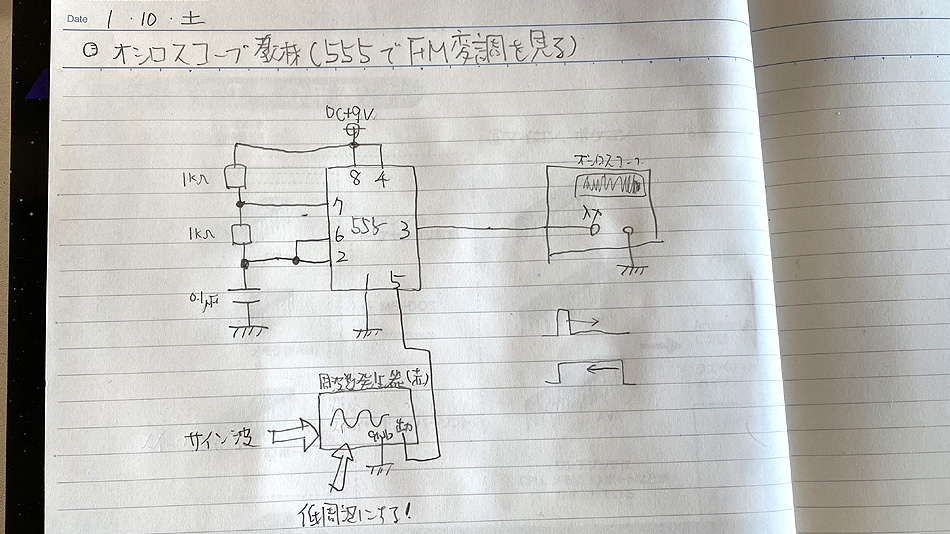 Date 1・10・土
オシロスコープ教材(555でFM変調を見る)
DC+9V
オシロスコープ
1kΩ
8 4
7
入力
1kΩ
6 555 3
2
0.1μF
1 5
周波数発生器(赤)
サイン波
GND 出力
低周波にする!